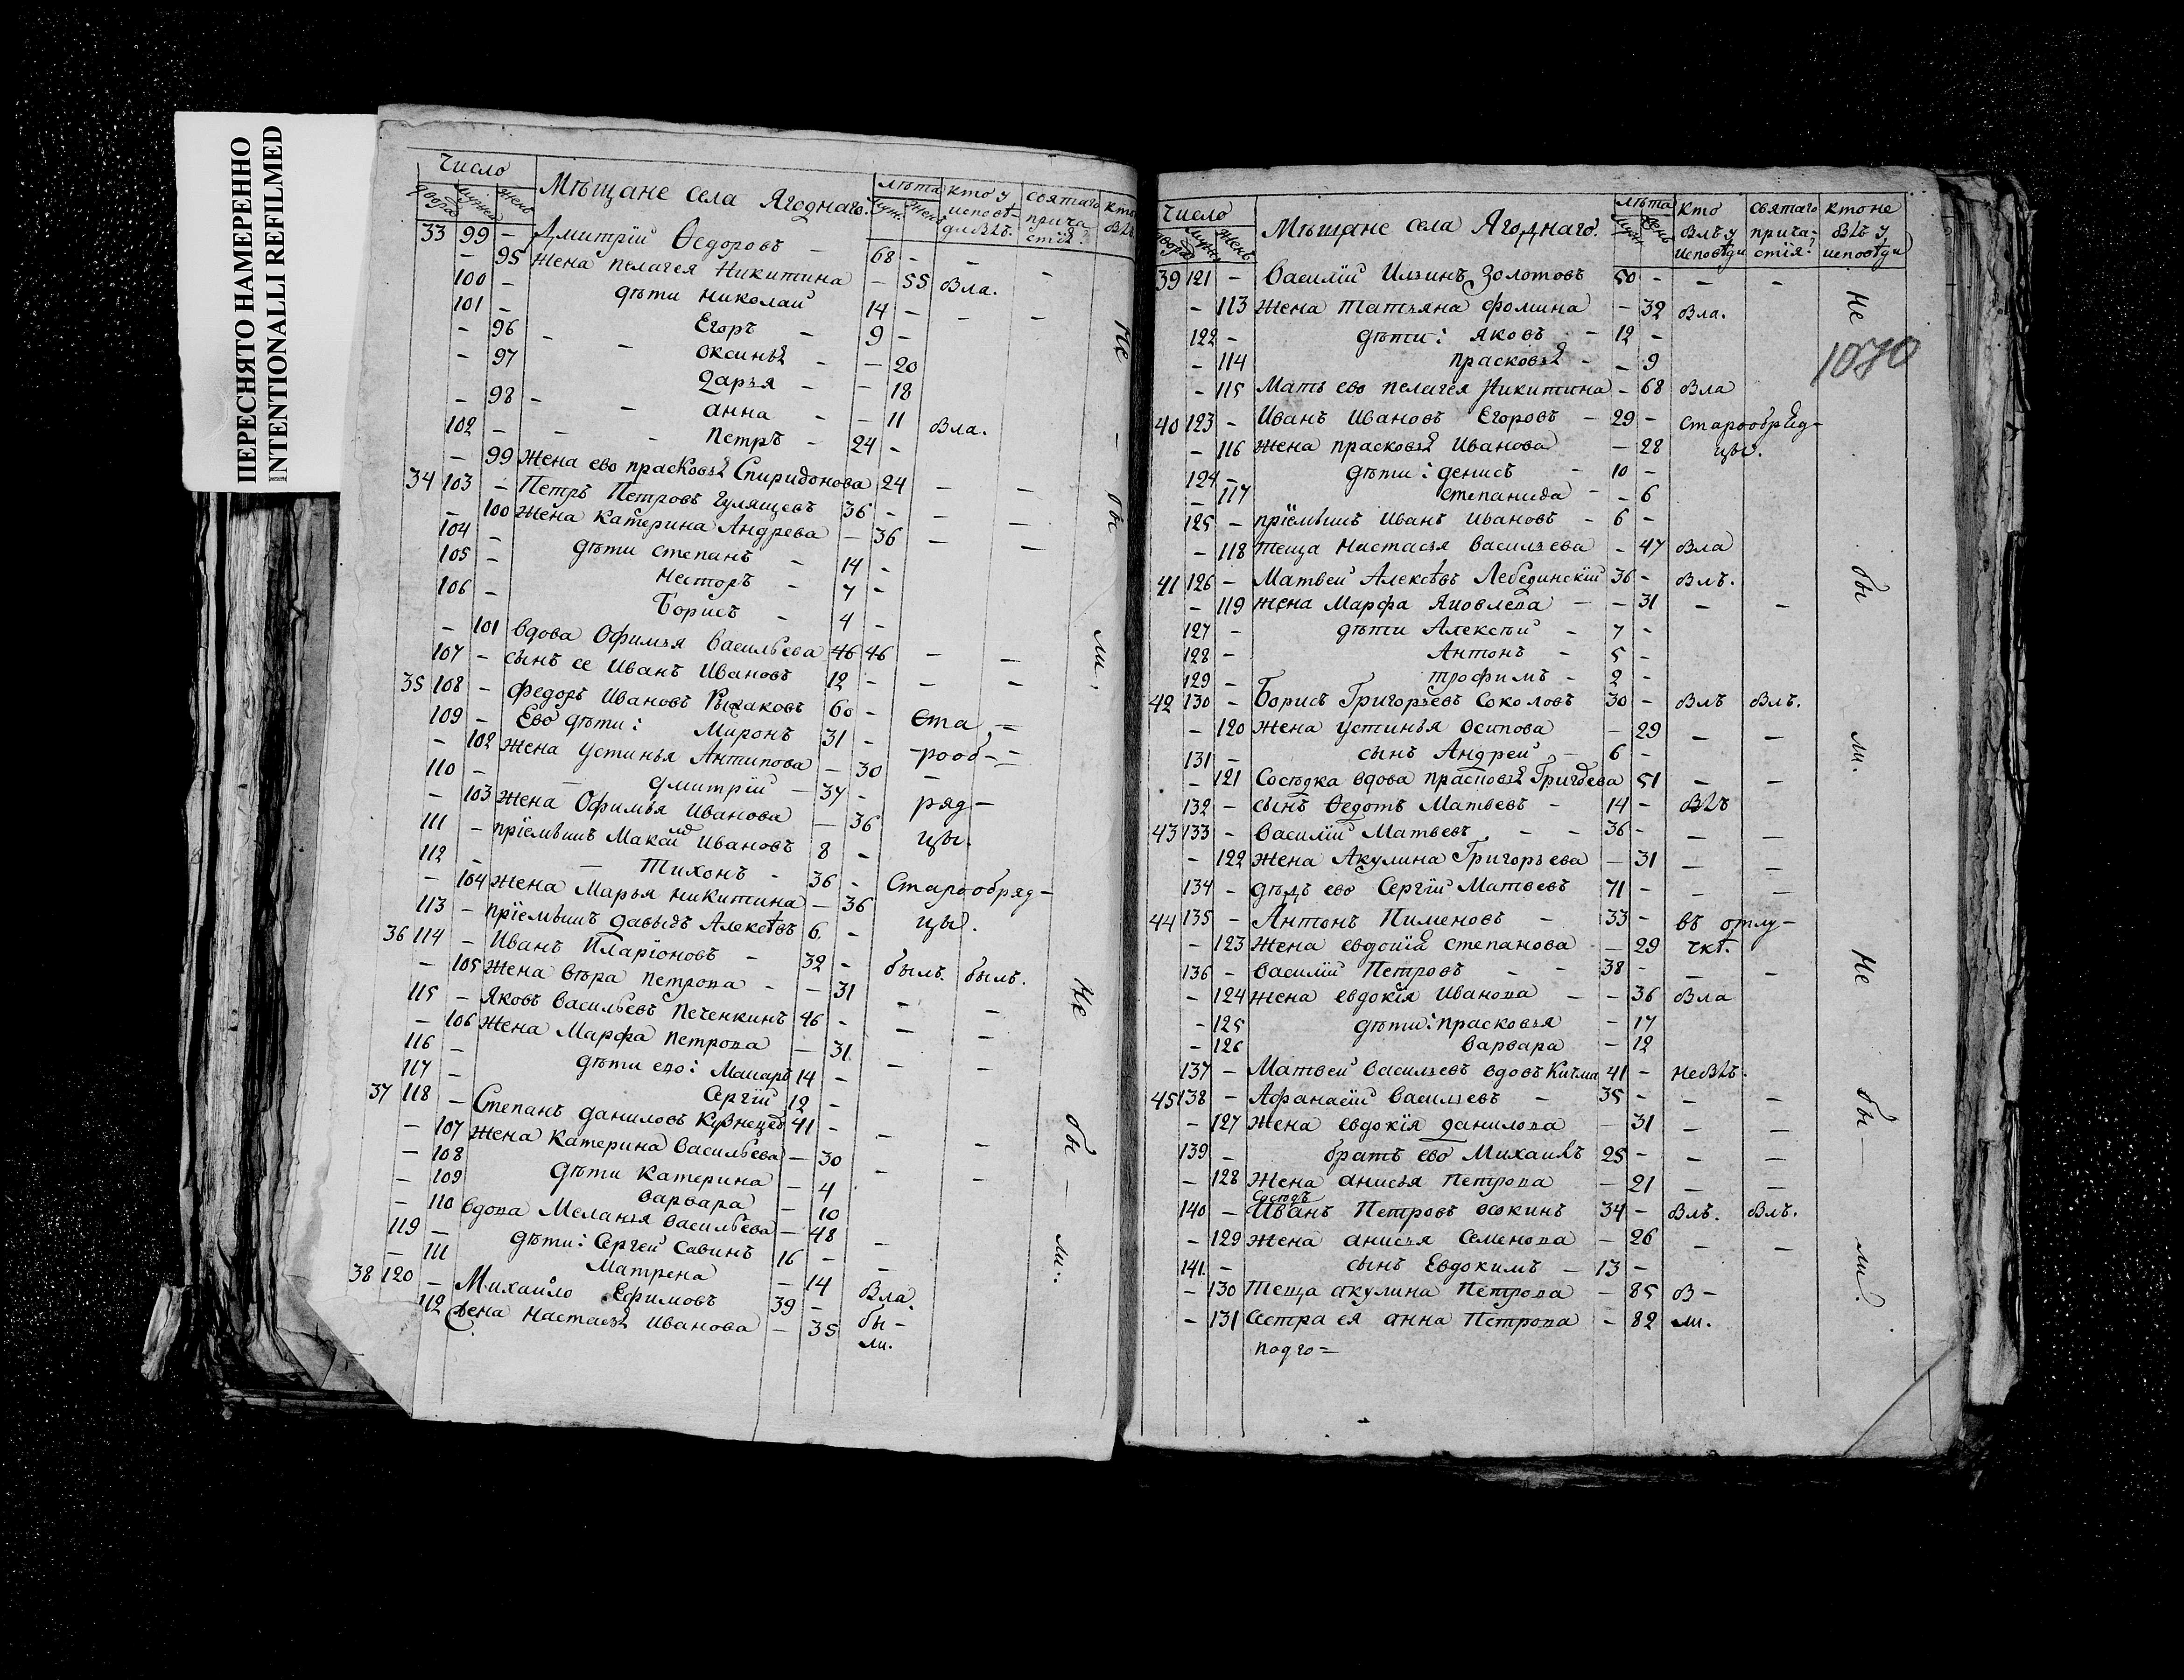 ПЕРЕСНЯТО НАМЕРЕННО
INTENTIONALLI REFILMED
Число Мѣщане села Ягоднаго. лѣта кто у исповѣ- святаго прича
33 99 – Дмитрій Ѳедоровъ – 68 – –
– 95 жена пелагея Никитина – 55 Бла.
100 – дѣти николай 14 – – –
101 – Егоръ – 9 –
– 96 – – оксинья – – 20
– 97 Дарья – – 18
– 98 – – анна – – 11 Бла.
102 – – – Петръ – 24 –
– 99 жена ево прасковья Спиридонова 24 – –
34 103 – Петръ Петровъ Гулящевъ 36 – – –
– 100 жена катерина Андрева – 36 – –
104 – дѣти степанъ – 14 –
105 – Несторъ – 7 –
106 – Борисъ – 4 –
– 101 вдова Офимья Васильева 46 46 – –
107 – сынъ ее Иванъ Ивановъ 12 – – –
35 108 – федоръ Ивановъ 60 – Ста
109 – Ево дѣти: Миронъ 31 – рооб–
– 102 жена устинья Антипова – 30 –
110 – – дмитрій – 34 – ряд–
– 103 жена Офимья Иванова – 36
111 – пріемышъ Максим Ивановъ 8 – цы.
112 – – тихонъ – 36 – Старообряд–
– 104 жена Марья никитина – 36
113 – пріемышъ давыдъ Алексѣвъ 6 – цы.
36 114 – Иванъ Иларіоновъ – 32 – былъ. былъ.
– 105 жена вѣра петрова – – 31 – –
115 – Яковъ Васильевъ Печенкинъ 46 – – –
– 106 жена Марфа петрова – 31 – –
116 – дѣти ево: Макаръ 14 –
117 – Сергій 12 –
37 118 – Степанъ даниловъ Кузнецов 41 – – –
– 107 жена катерина Васильева – 30 – –
– 108 дѣти катерина – 4
– 109 варвара – 10
– 110 вдова Меланья Васильева – 48 –
119 – дѣти: Сергей Савинъ 16 – –
– 111 Матрена – 14 Бла.
38 120 – Михайло Ефимовъ 39 – бы–
112 жена настасья Иванова – 35 ли.
Не – бы ли.
Не бы – ли:
Число Мѣщане села Ягоднаго. лѣта кто святаго кто не
блъ у прича- блъ у
исповѣди стія? исповѣди
39 121 – Василій Ильинъ Золотовъ 50 – – –
– 113 жена татьяна фомина – 32 бла.
122 – дѣти: яковъ – 12 –
– 114 прасковья – – 9
– 115 Мать ево пелагея Никитина – 68 бла
40 123 – Иванъ Ивановъ Егоровъ – 29 – старообряд–
– 116 жена прасковья Иванова – 28 цы.
124 – дѣти: денисъ – 10 –
– 117 степанида – – 6
125 – пріемышъ Иванъ Ивановъ – 6 –
– 118 теща настасья Васильева – 47 бла
41 126 – Матвей Алексѣвъ Лебединскій 36 – блъ.
– 119 жена Марфа Яковлева – – 31 – –
127 – дѣти Алексѣй – 7 –
128 – Антонъ – 5 –
129 – трофимъ – 2 –
42 130 – Борисъ Григорьевъ Соколовъ 30 – блъ блъ.
– 120 жена устинья осипова – 29 – –
131 – сынъ Андрей – 6 –
– 121 Сосѣдка вдова прасковья Григорьева 51 – –
132 – сынъ Ѳедотъ Матвѣевъ – 14 – блъ
43 133 – Василій Матвѣевъ – – 36 – – –
– 122 жена Акулина Григорьева – 31 – –
134 – дѣдъ ево Сергій Матвѣевъ 71 – – –
44 135 – Антонъ Пименовъ – 33 – въ отлу–
– 123 жена евдокія степанова – 29 чкѣ.
136 – василій Петровъ – – 38 – – –
– 124 жена евдокія Иванова – – 36 бла
– 125 дѣти: прасковья – 17
– 126 варвара – 12
137 – Матвей Васильевъ вдовъ 41 – не блъ.
45 138 – Афанасій Васильевъ – 35 – – –
– 127 жена евдокія данилова – 31 – –
139 – братъ ево Михаилъ 25 – – –
– 128 жена анисья петрова – 21 – –
Сосѣдъ
140 – Иванъ Петровъ 34 – блъ. блъ.
– 129 жена анисья Семенова – 26 – –
141 – сынъ Евдокимъ – 13 –
– 130 теща акулина Петрова – 85 б –
– 131 Сестра ея анна Петрова – 82 ли.
подго=
Не
1070
бы
ли.
Не
бы –
ли.